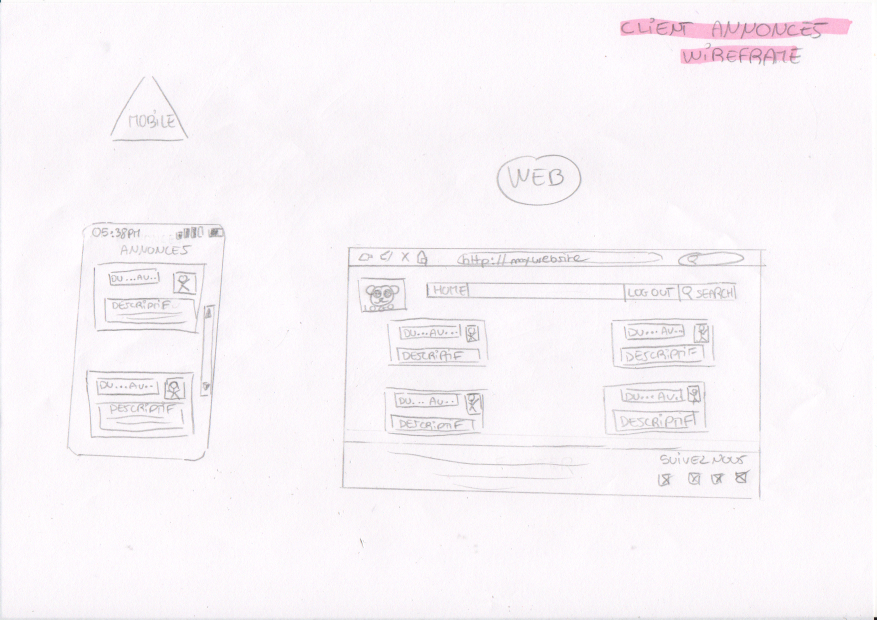 CLIENT ANNONCES
WIREFRAME
MOBILE
WEB
05:38PM
ANNONCES
DU...AU..
DESCRIPTIF
DU...AU..
DESCRIPTIF
http://mywebsite
LOGO
HOME
LOG OUT
SEARCH
DU...AU..
DESCRIPTIF
DU...AU..
DESCRIPTIF
DU...AU..
DESCRIPTIF
DU...AU..
DESCRIPTIF
SUIVEZ NOUS